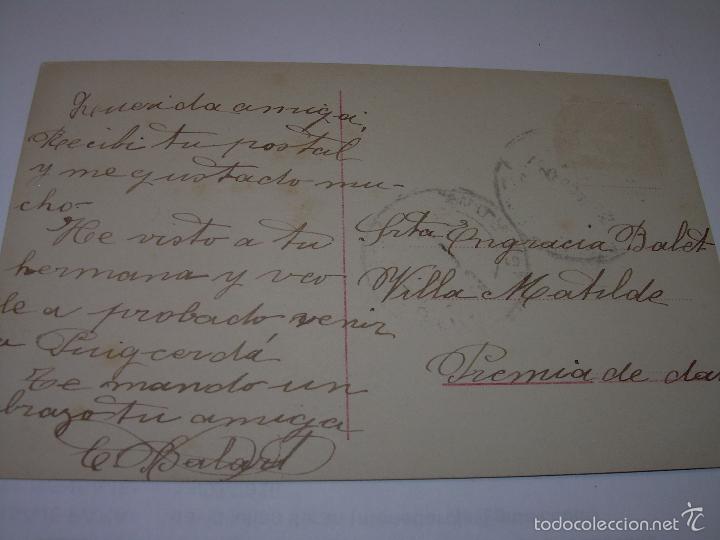 Querida amiga,
Recibi tu postal
y me gustado mu-
cho-
He visto a tu
hermana y veo
le a probado venir
a Puigcerdá
Te mando un
brazo tu amiga
C. Balart
Srta Engracia Balet
Villa Matilde
Premia de dar
todocoleccion.net